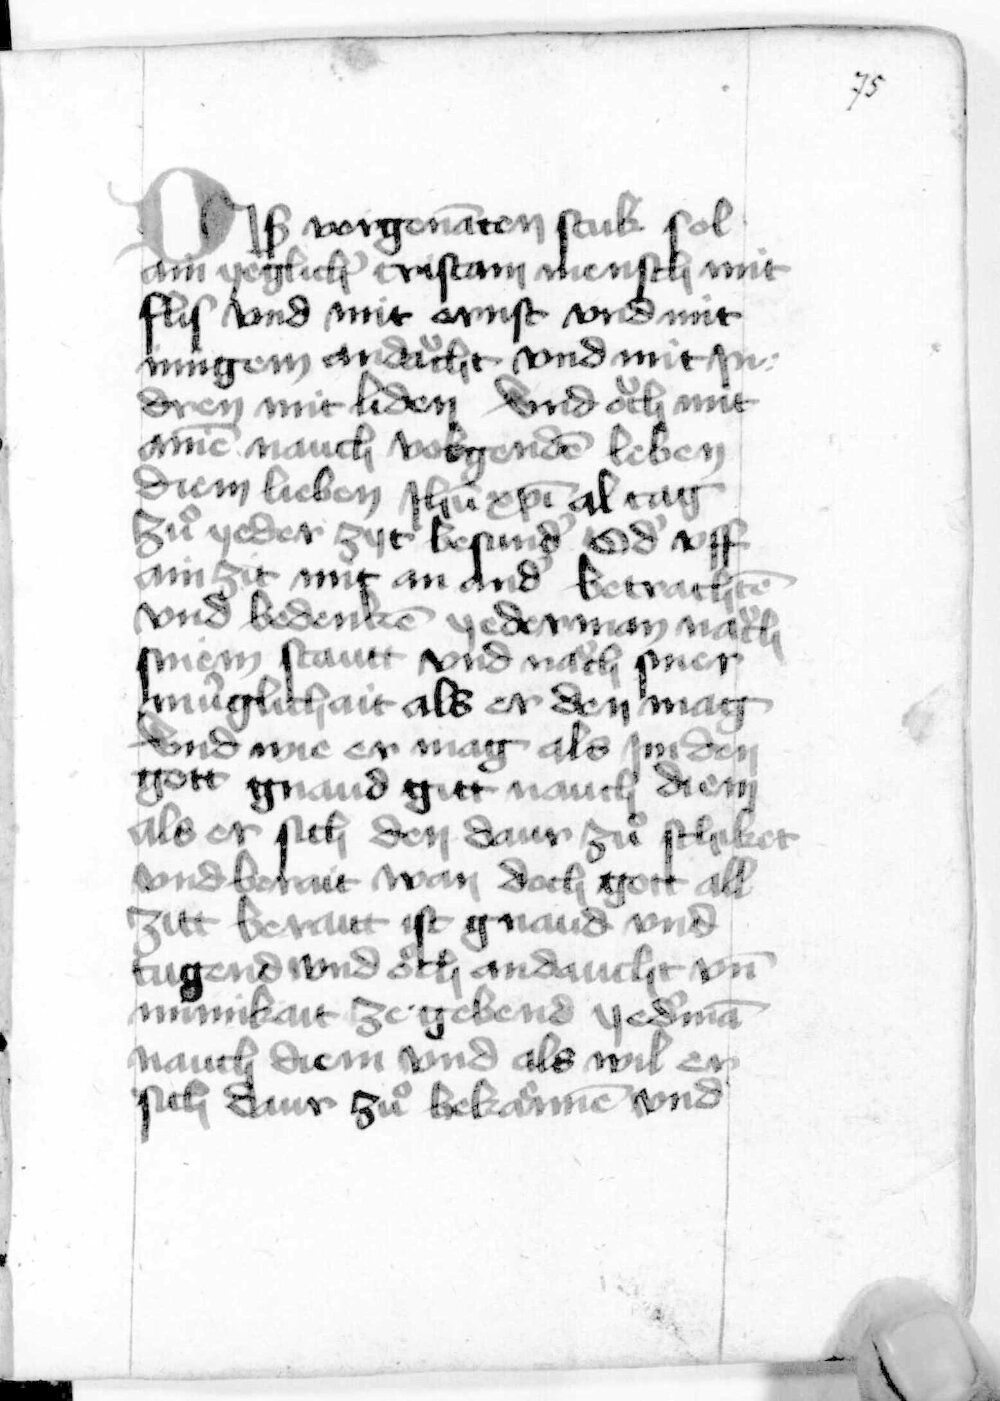 75
Diß vorgenāten stuk sol
ain yeglich' cristam mensch mit
flis vnd mit ernst vnd mit
inngem andaͮcht vnd mit in:
dren mit liden Vnd oͮch mit
aīne nauch volgendē leben
diem lieben Jhū xp̄i al tag
Zuͦ yeder zyt besund' Od' vff
ain zit mit an and' betrachtē
vnd bedenkē yederman naͮch
sinem stautt vnd naͮch siner
muͤglichait als er den mag
Vnd wie er mag als im den
gott gnaud gitt nauch diem
als er sich den daur zuͦ schiket
vnd berait wan doch gott all
zitt beraitt ist gnaud vnd
tugend vnd oͮch andaucht vn̄
innikait ze gebend yed'mā
nauch diem vnd als wil er
sich daur zuͦ bekaͤrnē vnd